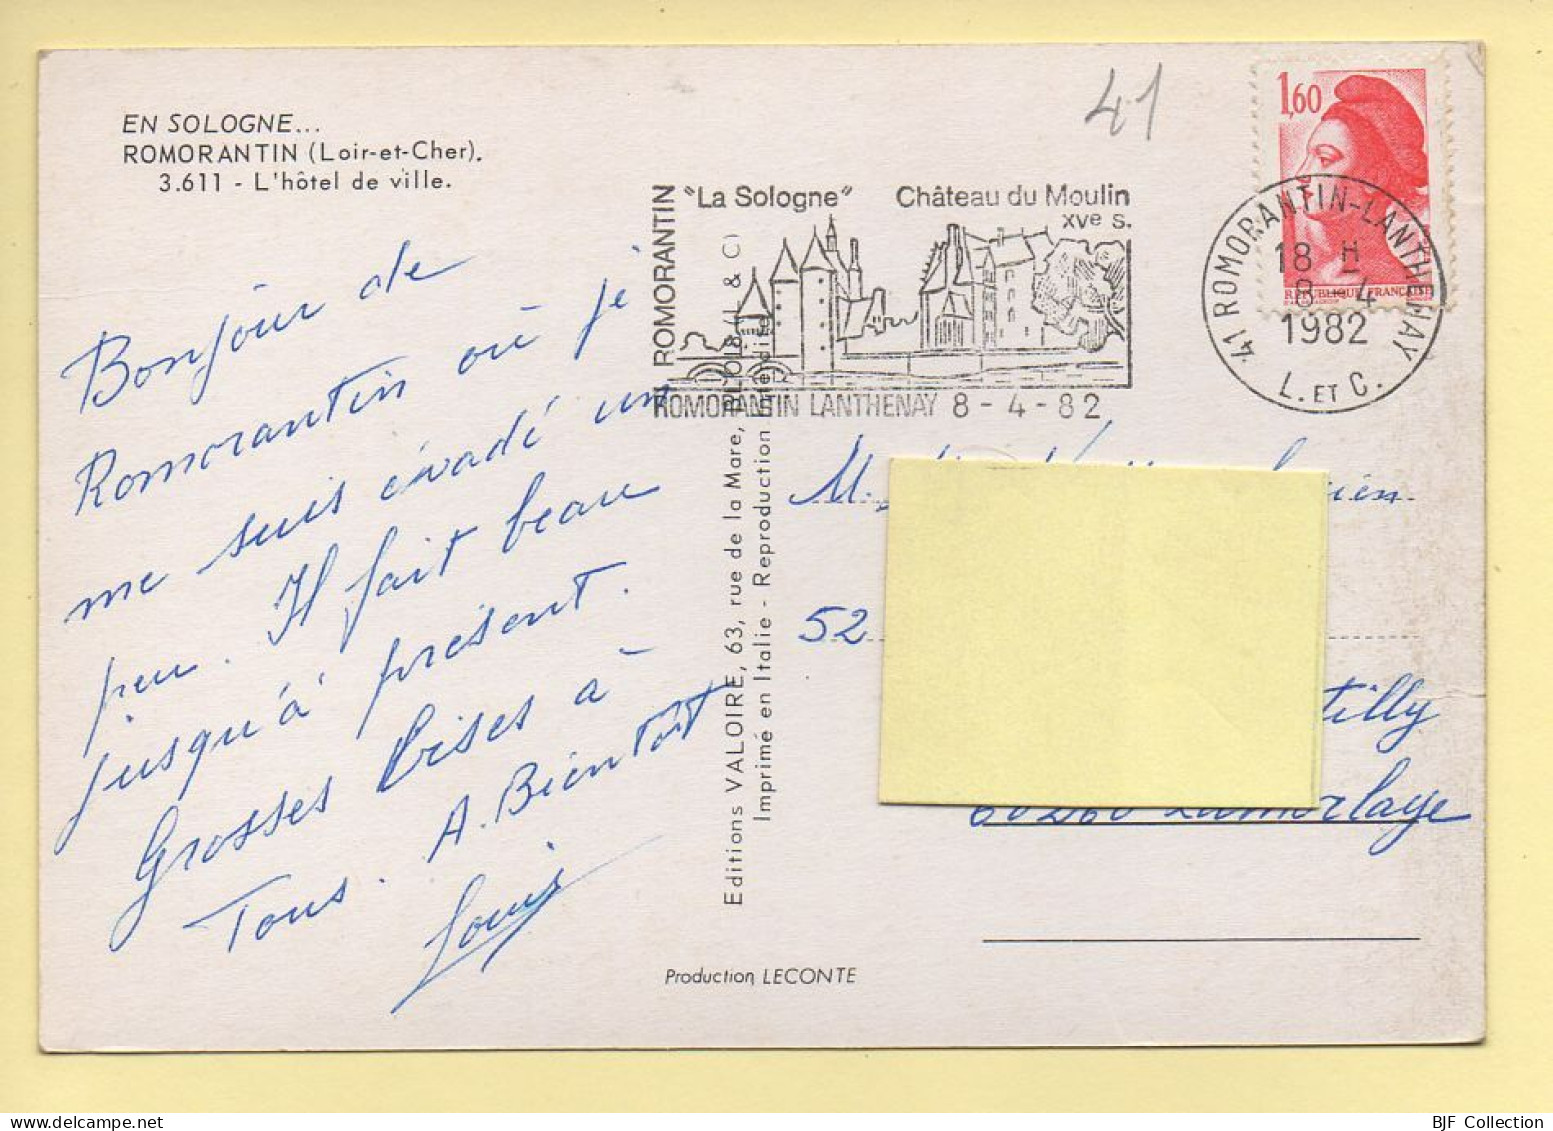 EN SOLOGNE...
ROMORANTIN (Loir-et-Cher).
3.611 - L'hôtel de ville.
41
1,60
RÉPUBLIQUE FRANÇAISE
ROMORANTIN
"La Sologne" Château du Moulin
XVe s.
ROMORANTIN LANTHENAY 8 - 4 - 82
41 ROMORANTIN-LANTHENAY
18 H
8 4
1982
L. ET C.
Bonjour de
Romorantin où je
me suis évadé un
peu. Il fait beau
jusqu'à présent.
Grosses bises à
Tous. A. Bientôt
Louis
Editions VALOIRE, 63, rue de la Mare, BLOIS (L. & C)
Imprimé en Italie - Reproduction interdite
Production LECONTE
M.
52
tilly
60260 Lamorlaye
BJF Collection